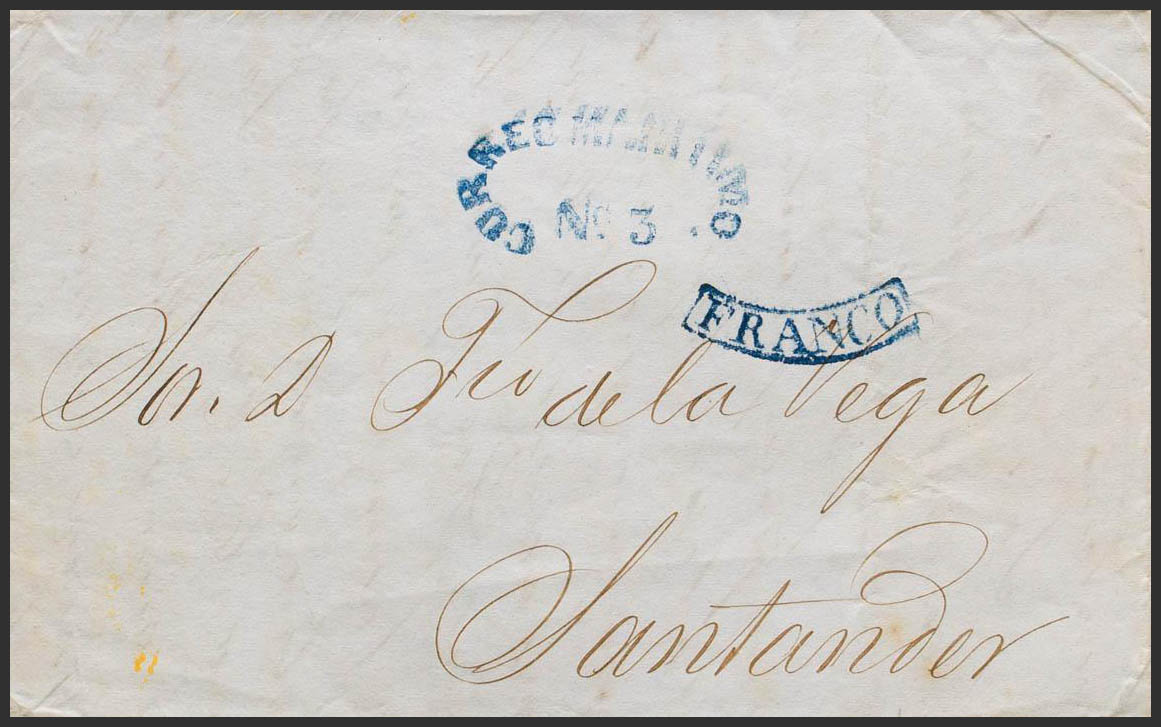 CORREO MARITIMO
Nº 3
FRANCO
Sor. D Fco de la Vega
Santander